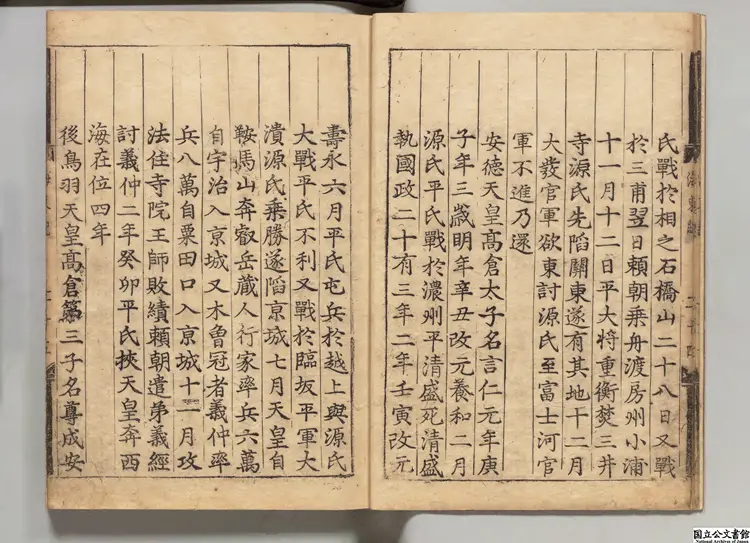 氏戰於相之石橋山二十八日又戰
於三甫翌日頼朝乗舟渡房州小浦
十一月十二日平大将重衡焚三井
寺源氏先陷關東遂有其地十二月
大發官軍欲東討源氏至富士河官
軍不進乃還
安德天皇高倉太子名言仁元年庚
子年三歳明年辛丑改元養和二月
源氏平氏戰於濃州平清盛死清盛
執國政二十有三年二年壬寅改元
壽永六月平氏屯兵於越上與源氏
大戰平氏不利又戰於臨坂平軍大
潰源氏乗勝遂陷京城七月天皇自
鞍馬山奔叡岳蔵人行家率兵六萬
自宇治入京城又木曽冠者義仲率
兵八萬自粟田口入京城十一月攻
法住寺院王師敗績頼朝遣弟義經
討義仲二年癸卯平氏挾天皇奔西
海在位四年
後鳥羽天皇高倉第三子名尊成安
国立公文書館
National Archives of Japan